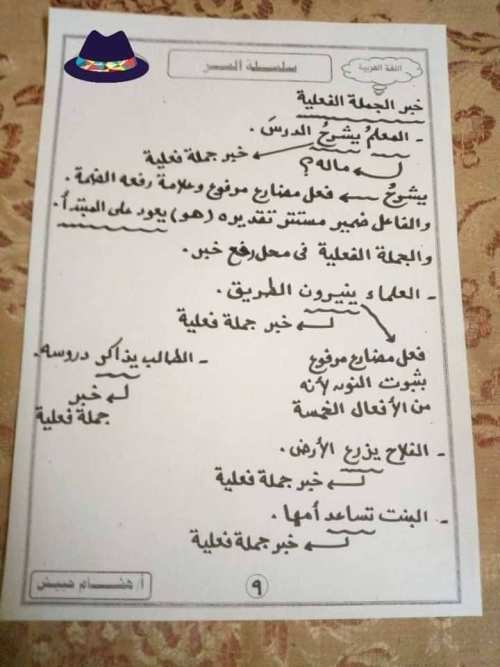 اللغة العربية
سلسلة السر
خبر الجملة الفعلية
- المعلمُ يشرحُ الدرسَ.
ماله؟ خبر جملة فعلية
يشرحُ ← فعل مضارع مرفوع وعلامة رفعه الضمة.
والفاعل ضمير مستتر تقديره (هو) يعود على المبتدأ.
والجملة الفعلية فى محل رفع خبر.
- العلماء ينيرون الطريق.
خبر جملة فعلية
فعل مضارع مرفوع
بثبوت النون لأنه
من الأفعال الخمسة
- الطالب يذاكر دروسه.
خبر
جملة فعلية
- الفلاح يزرع الأرض.
خبر جملة فعلية
- البنت تساعد أمها.
خبر جملة فعلية
٩
أ/ هشام حبيش